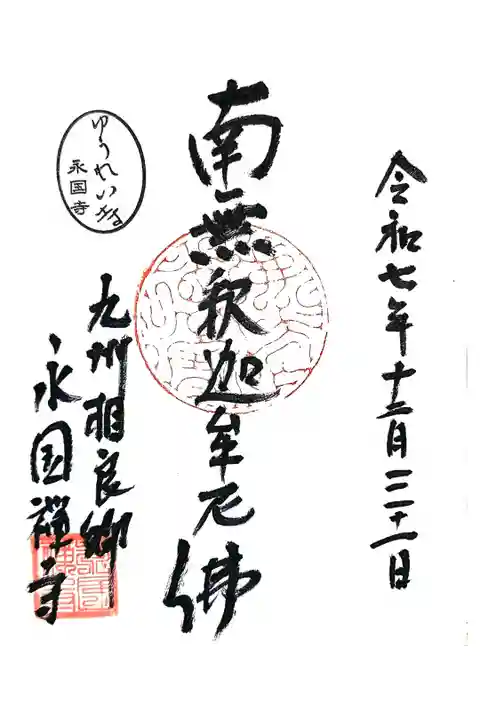 令和七年十二月三十一日
南無釈迦牟尼佛
九州相良郷
永国禅寺
ゆうれい寺
永国寺